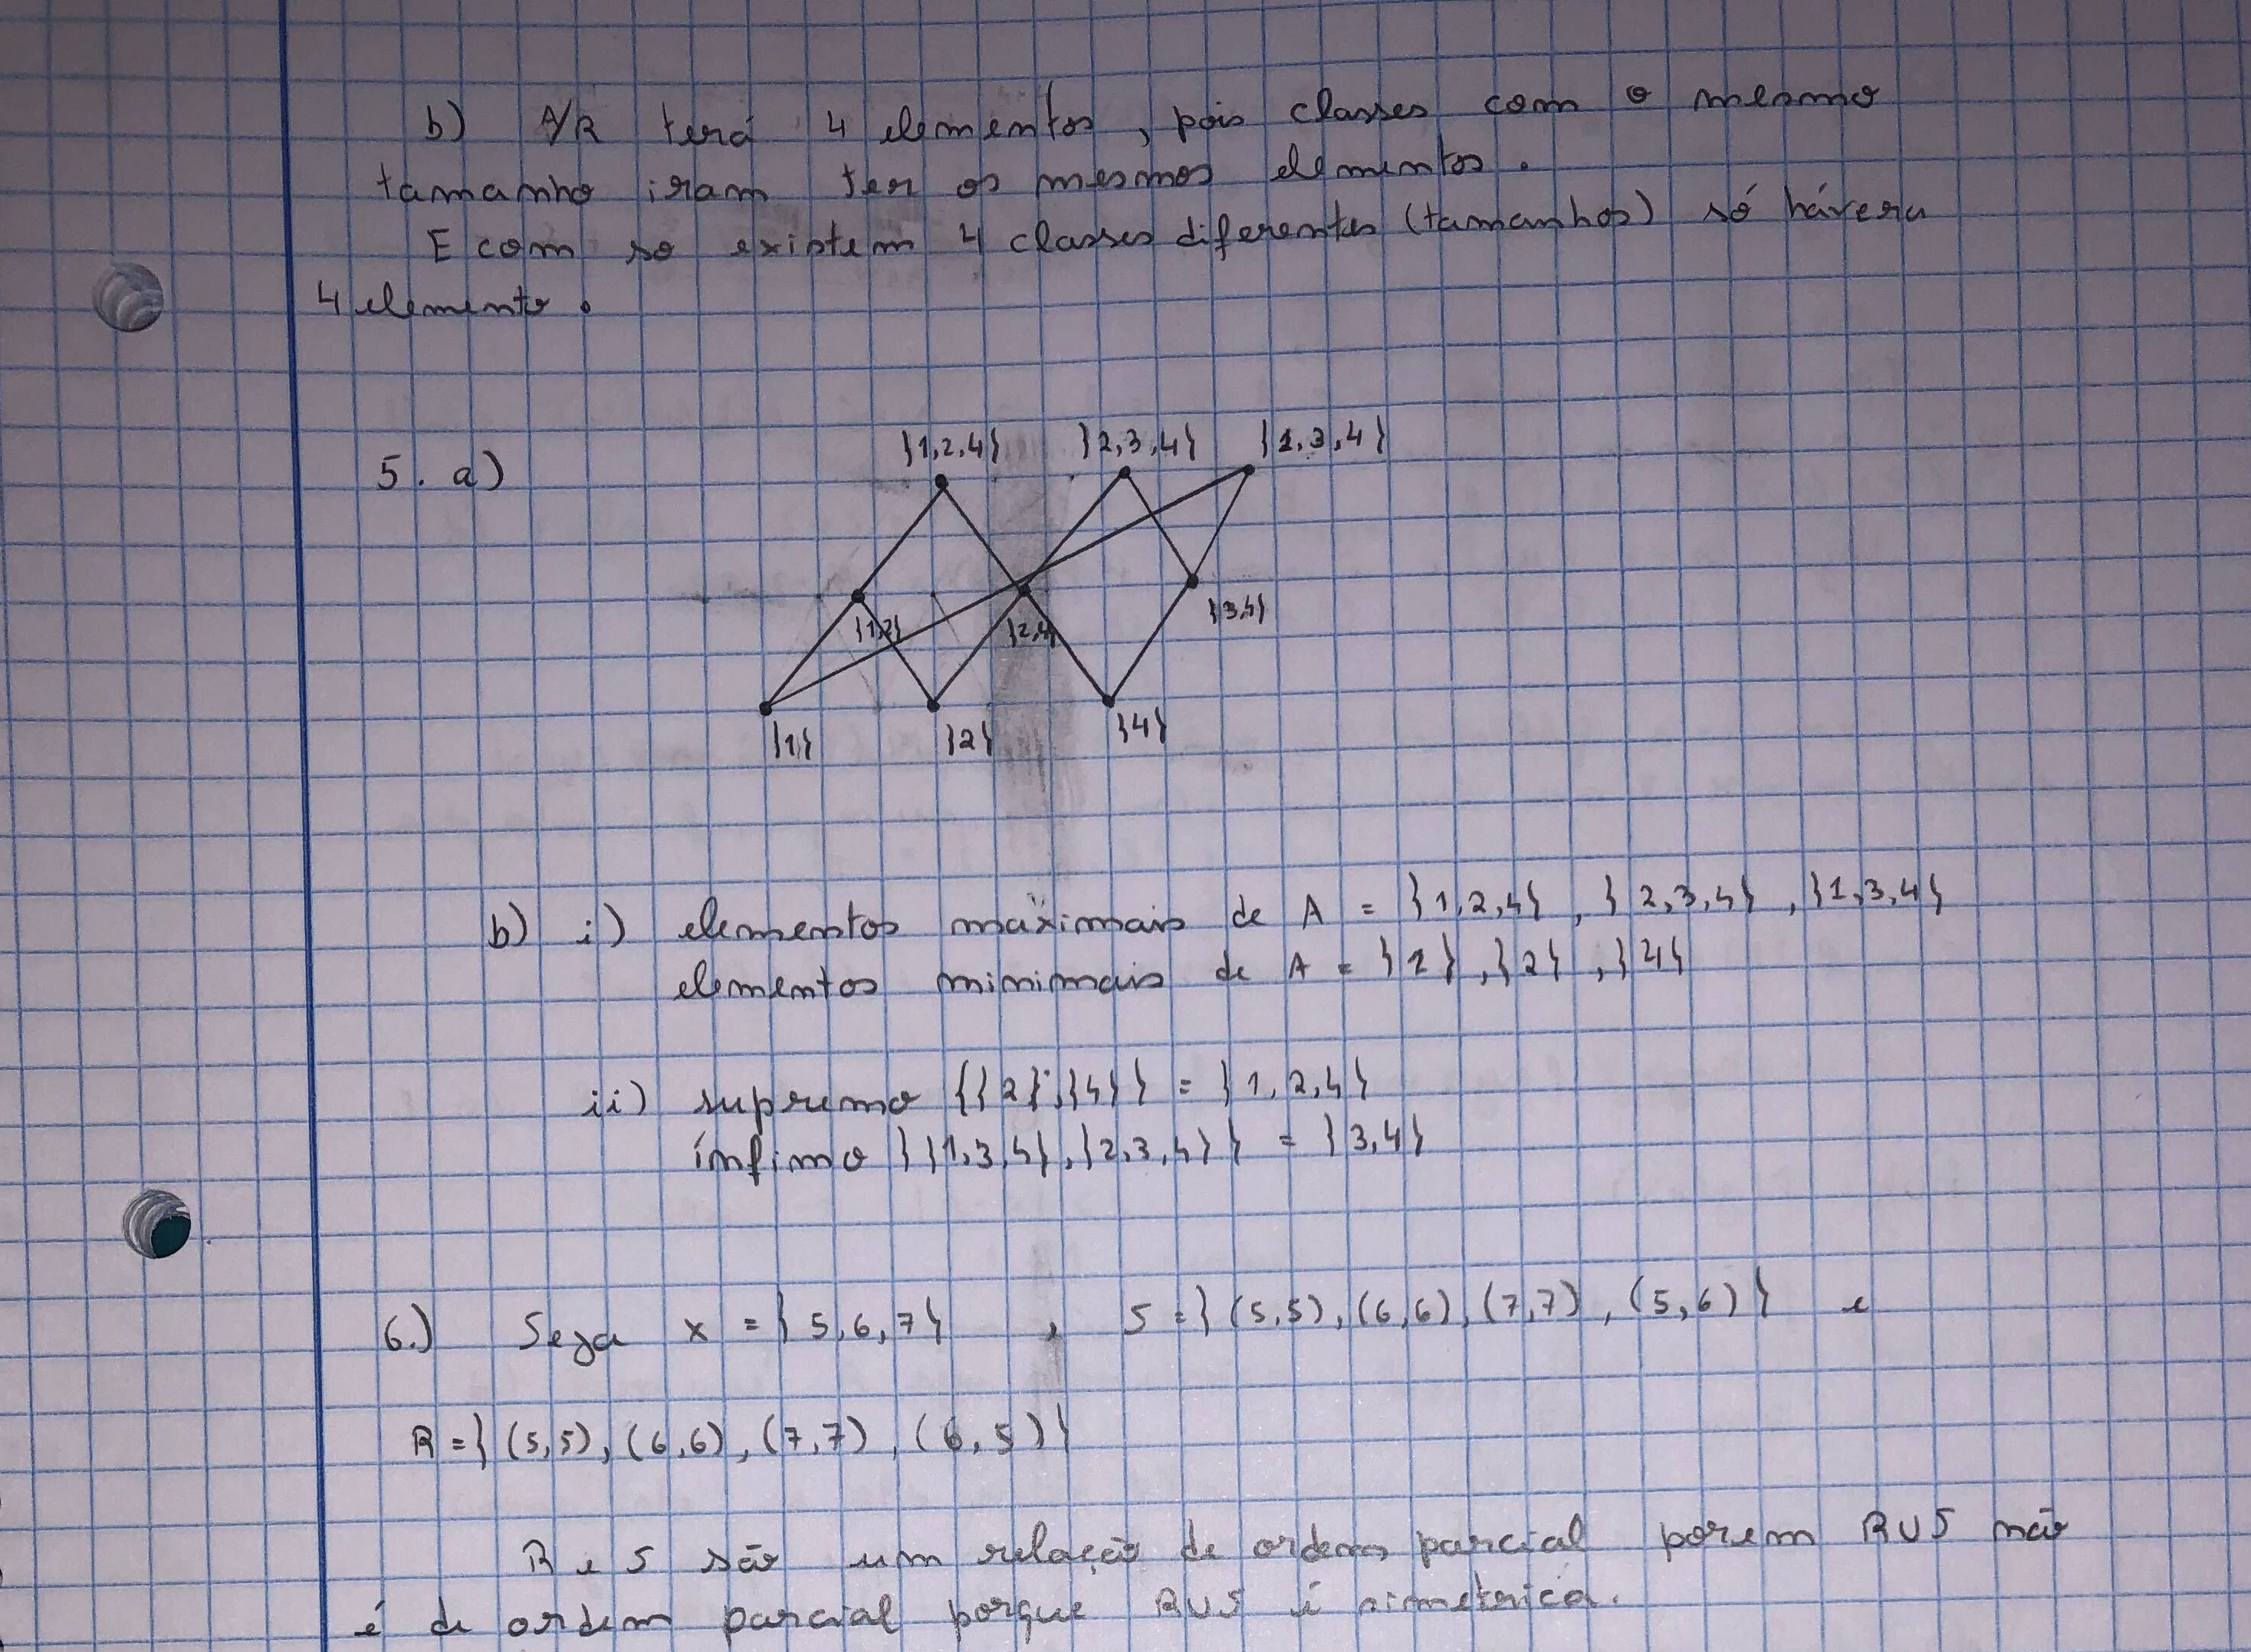 b) A/R terá 4 elementos, pois classes com o mesmo
tamanho iram ter os mesmos elementos.
E com so existem 4 classes diferentes (tamanhos) só hávera
4 elemento.
5. a)
{1,2,4} {2,3,4} {1,3,4}
{1,2} {2,4} {3,4}
{1} {2} {4}
b) i) elementos maximais de A = {1,2,4}, {2,3,4}, {1,3,4}
elementos minimais de A = {1}, {2}, {4}
ii) supremo {{2},{4}} = {1,2,4}
ínfimo {{1,3,4},{2,3,4}} = {3,4}
6.) Seja x = {5,6,7} , S = {(5,5), (6,6), (7,7), (5,6)} e
R = {(5,5), (6,6), (7,7), (6,5)}
R e S são um relação de ordem parcial porem RUS não
é de ordem parcial porque RUS é simetrica.